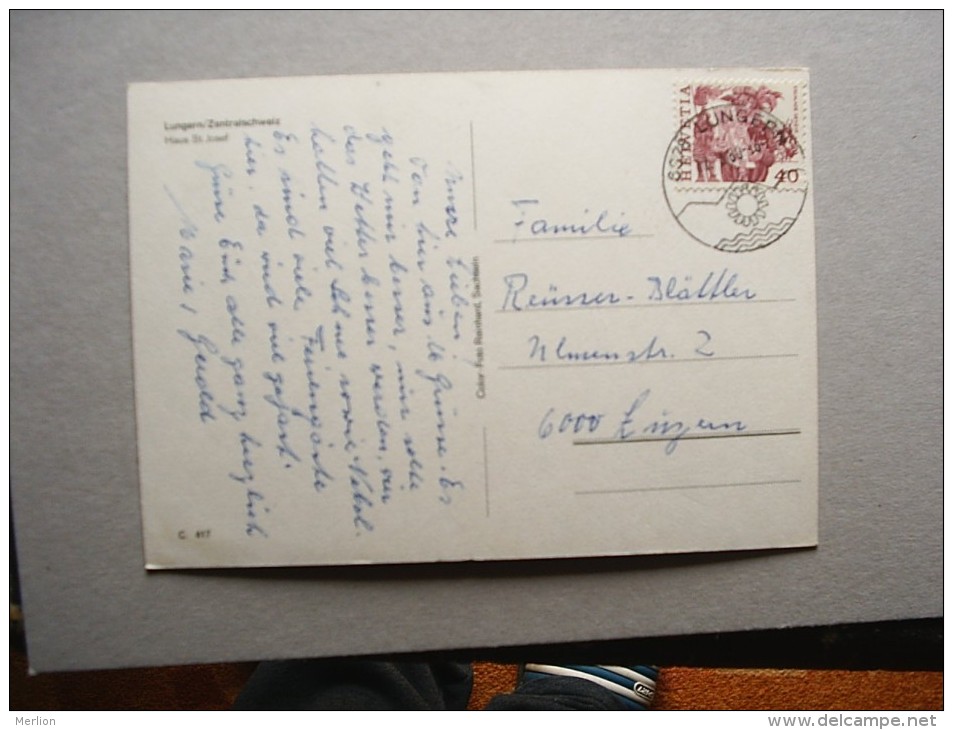 Lungern/Zentralschweiz
Haus St. Josef
Unsere Lieben!
Von hier aus lb Grüsse. Es
geht mir besser, nur sollte
das Wetter besser werden, wir
hatten viel Schnee sowie Nebel.
Es sind viele Feriengäste
hier, da wird viel gejasst.
Grüsse Euch alle ganz herzlich
Marie, Gerold
C. 617
Color-Foto Reinhard, Sachseln
HELVETIA
40
6078 LUNGERN
Familie
Reüsser-Blättler
Ulmenstr. 2
6000 Luzern
Merlion
www.delcampe.net